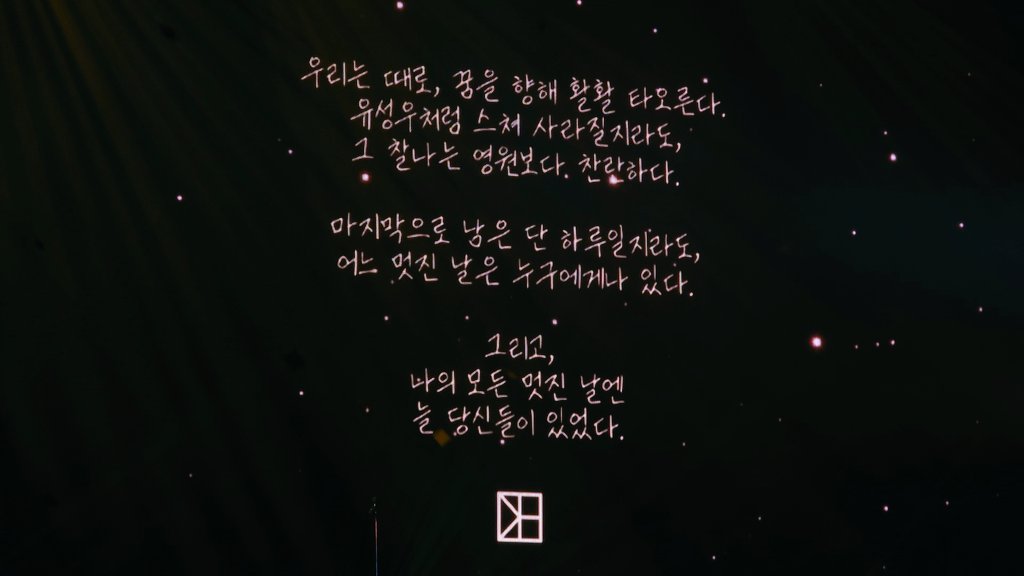 우리는 때로, 꿈을 향해 활활 타오른다.
유성우처럼 스쳐 사라질지라도,
그 찰나는 영원보다. 찬란하다.
마지막으로 남은 단 하루일지라도,
어느 멋진 날은 누구에게나 있다.
그리고,
나의 모든 멋진 날엔
늘 당신들이 있었다.